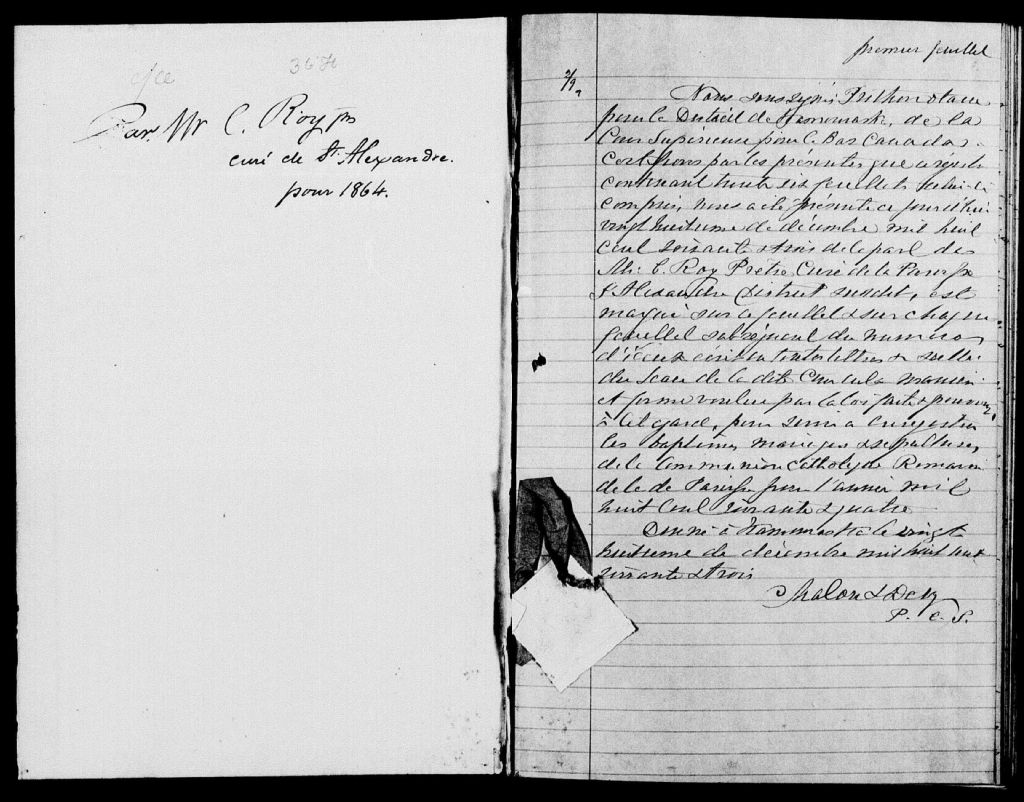 36f
Par Mr C. Roy ptre
curé de St Alexandre.
pour 1864.
premier feuillet
Nous soussignés Prothonotaire
pour le District de Kamouraska, de la
Cour Supérieure pour le Bas Canada
Certifions par les présentes que ce registre
contenant trente six feuillets celui-ci
compris, nous a été présenté ce jourd'hui
vingt huitième de décembre mil huit
cent soixante & trois de la part de
Mr C. Roy Prêtre Curé de la Paroisse
St Alexandre District susdit, est
marqué sur ce feuillet & sur chaque
feuillet subséquent du numéro
d'iceux écrit en toutes lettres & scellé
du Sceau de la dite Cour en la manière
et forme voulue par la loi faite & pourvue
à cet égard, pour servir à enregistrer
les baptêmes, mariages & sépultures,
de la Communion Catholique Romaine
de la dte Paroisse pour l'année mil
huit cent soixante & quatre
Donné à Kamouraska le vingt
huitième de décembre mil huit cent
soixante & trois
P. C. S.